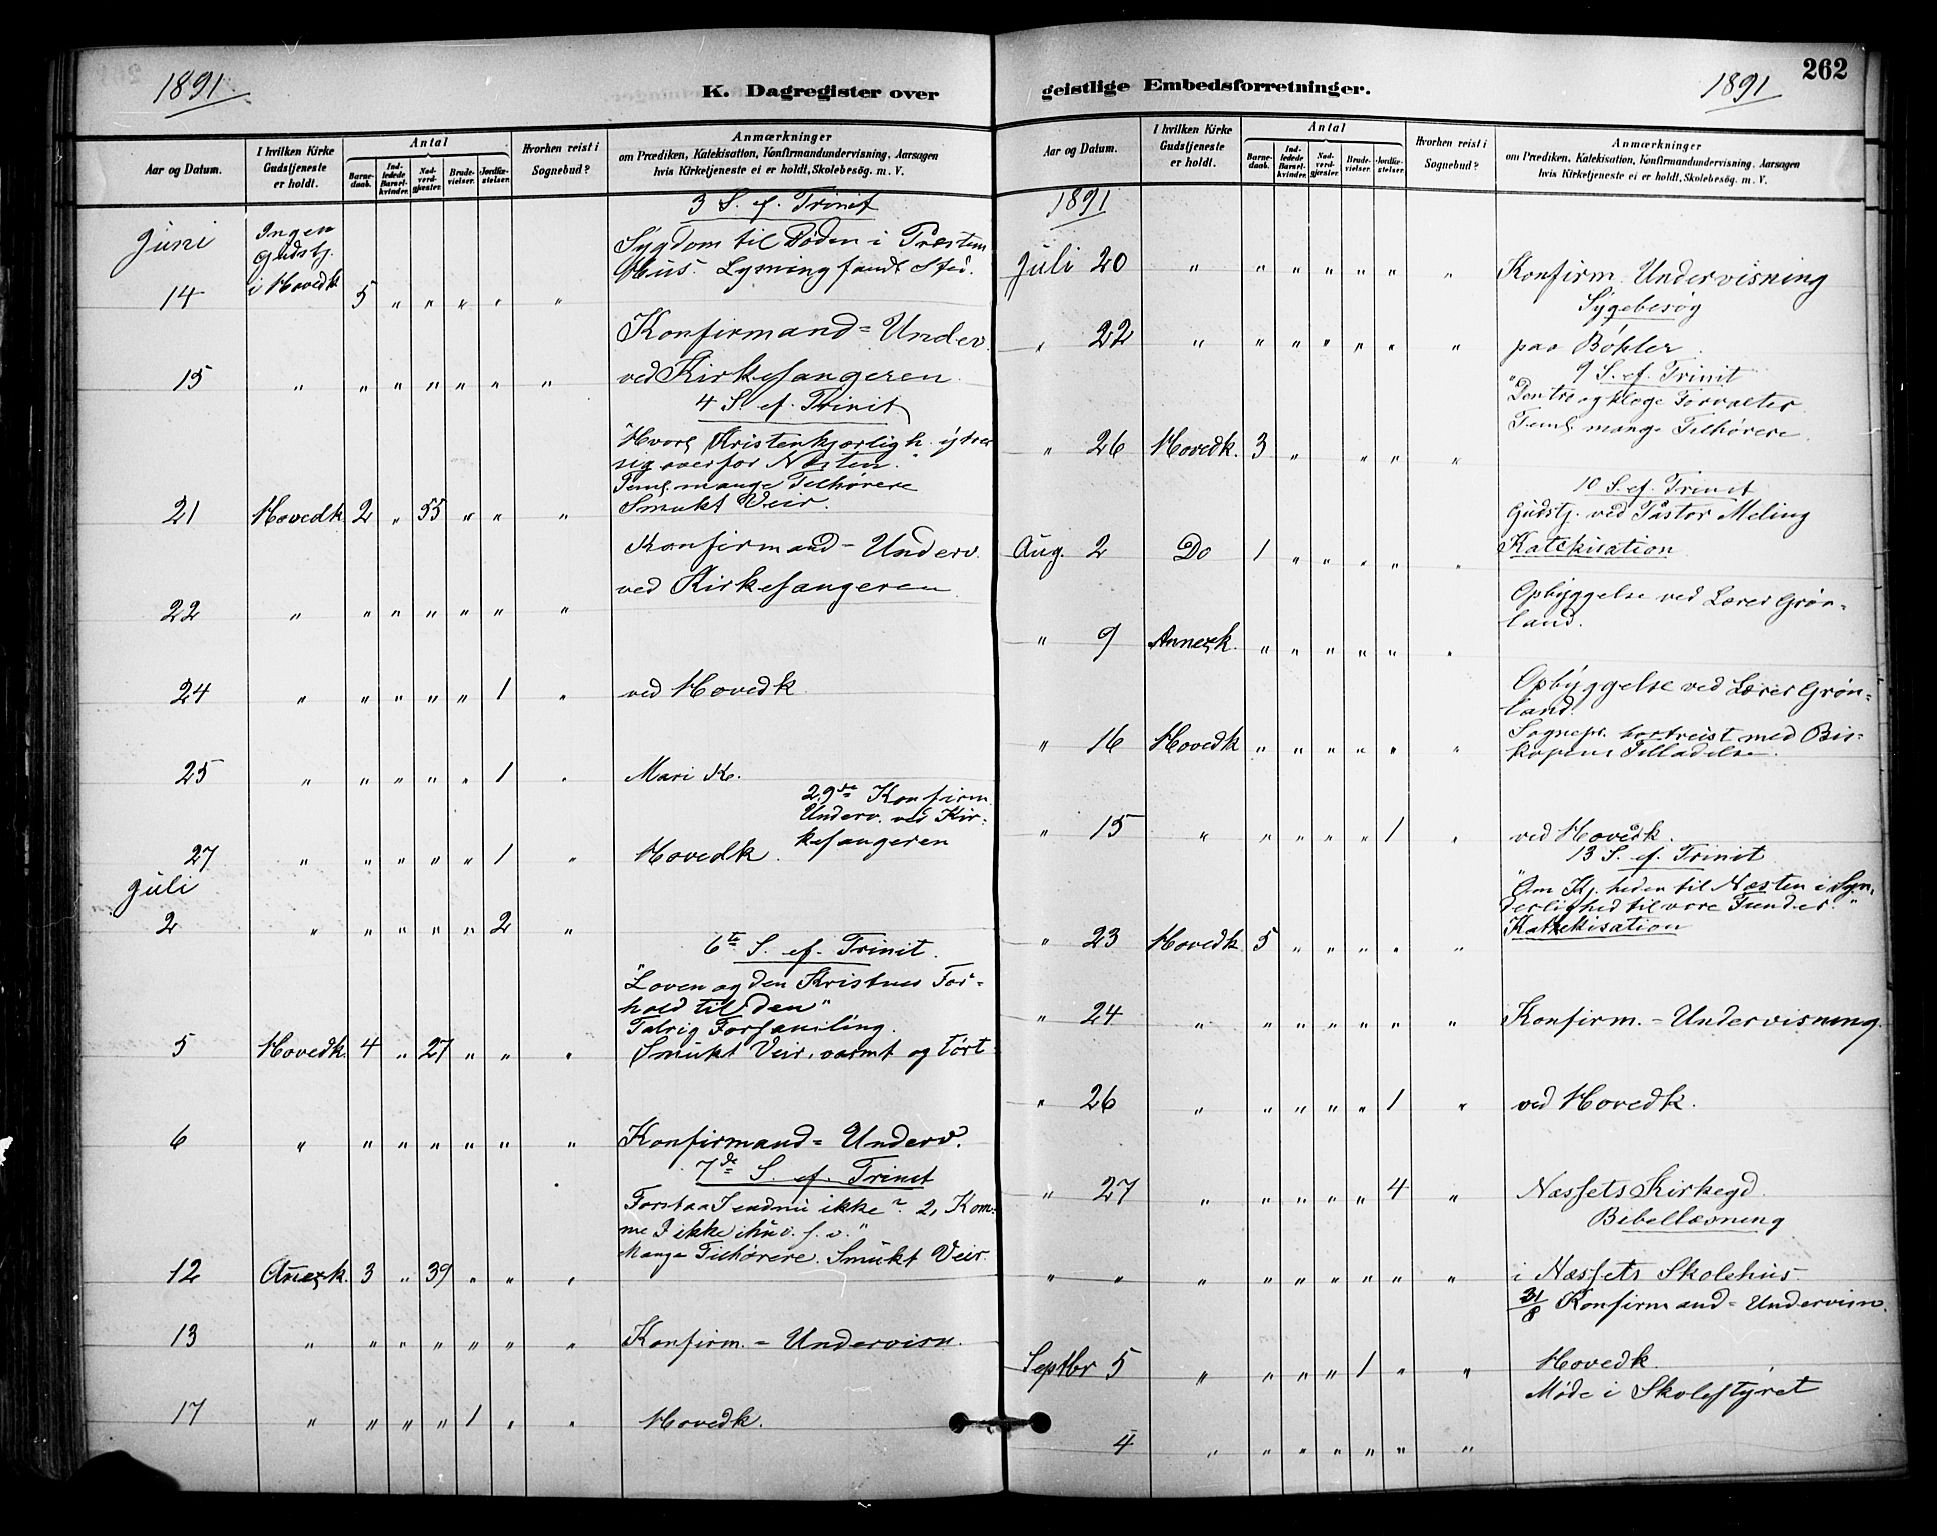 1891.
K. Dagregister over
Antal
Aar og Datum.
I hvilken Kirke Gudstjeneste er holdt.
Barnedaab.
Indledede Barselkvinder.
Nadverdgjæster.
Brudevielser.
Jordfæstelser.
Hvorhen reist i Sognebud?
Anmærkninger
om Prædiken, Katekisation, Konfirmandundervisning, Aarsagen
hvis Kirketjeneste ei er holdt, Skolebesøg. m. V.
3 S. ef. Trinit
Juni Ingen
Gudstj. Sygdom til Døden i Præstens
i Hovedk Hus. Lysning fandt Sted.
14 5 " " " " "
Konfirmand = Underv.
15 " " " " " " " ved Kirkesangeren
4 S. ef. Trinit
"Hvorl. Kristenkjærligh. ytrer
sig overfor Næsten."
Teml. mange Tilhørere
21 Hovedk. 2 " 55 " " " Smukt Veir.
Konfirmand - Underv.
ved Kirkesangeren
22 " " " " " " "
24 " " " " " 1 " ved Hovedk.
25 " " " " " 1 " Mari K.
29de Konfirm.
Underv. ved Kir-
kesangeren
27 " " " " " 1 " Hovedk.
Juli
2 " " " " " 2 "
6te S. ef. Trinit.
"Loven og den Kristnes For-
hold til den"
Talrig Forsamling.
5 Hovedk. 4 " 27 " " " Smukt Veir, varmt og tørt
6 " " " " " " " Konfirmand = Underv.
7de S. ef. Trinit
Forstaa I endnu ikke? 2, Kom-
me I ikke ihu o. s. v."
Mange Tilhørere. Smukt Veir.
12 Anexk. 3 " 39 " " "
13 " " " " " " " Konfirm. = Undervisn.
17 " " " " 1 " " Hovedk.
262
1891
geistlige Embedsforretninger.
Antal
Aar og Datum.
I hvilken Kirke Gudstjeneste er holdt.
Barnedaab.
Indledede Barselkvinder.
Nadverdgjæster.
Brudevielser.
Jordfæstelser.
Hvorhen reist i Sognebud?
Anmærkninger
om Prædiken, Katekisation, Konfirmandundervisning, Aarsagen
hvis Kirketjeneste ei er holdt, Skolebesøg. m. V.
1891
Juli 20 " " " " " " " Konfirm. Undervisning
Sygebesøg
" 22 " " " " " " " paa Bøhler
9 S. ef. Trinit
"Den tro og kloge Forvalter
Teml. mange Tilhørere.
" 26 Hovedk. 3 " " " "
10 S. ef. Trinit
Gudstj. ved Pastor Meling
Aug. 2 Do 1 " " " " " Katekisation
Opbyggelse ved Lærer Grøn-
land.
" 9 Annexk. " " " " " "
Opbyggelse ved Lærer Grøn-
land.
" 16 Hovedk " " " " " " Sognepr. bortreist med Bis-
kopens Tilladelse.
" 15 " " " " " 1 " ved Hovedk.
13 S. ef. Trinit
"Om Kj.heden til Næsten i Syn-
derlighed til vore Fiender."
" 23 Hovedk 5 " " " " " Katekisation
" 24 " " " " " " " Konfirm. - Undervisning.
" 26 " " " " " 1 " ved Hovedk.
" 27 " " " " " 4 " Næssets Kirkegd.
Bibellæsning
" " " " " " " " " i Næssets Skolehus.
31/8 Konfirmand = Undervisn.
Septbr 5 " " " " 1 " " Hovedk.
Møde i Skolestyret
4 " " " " " " "